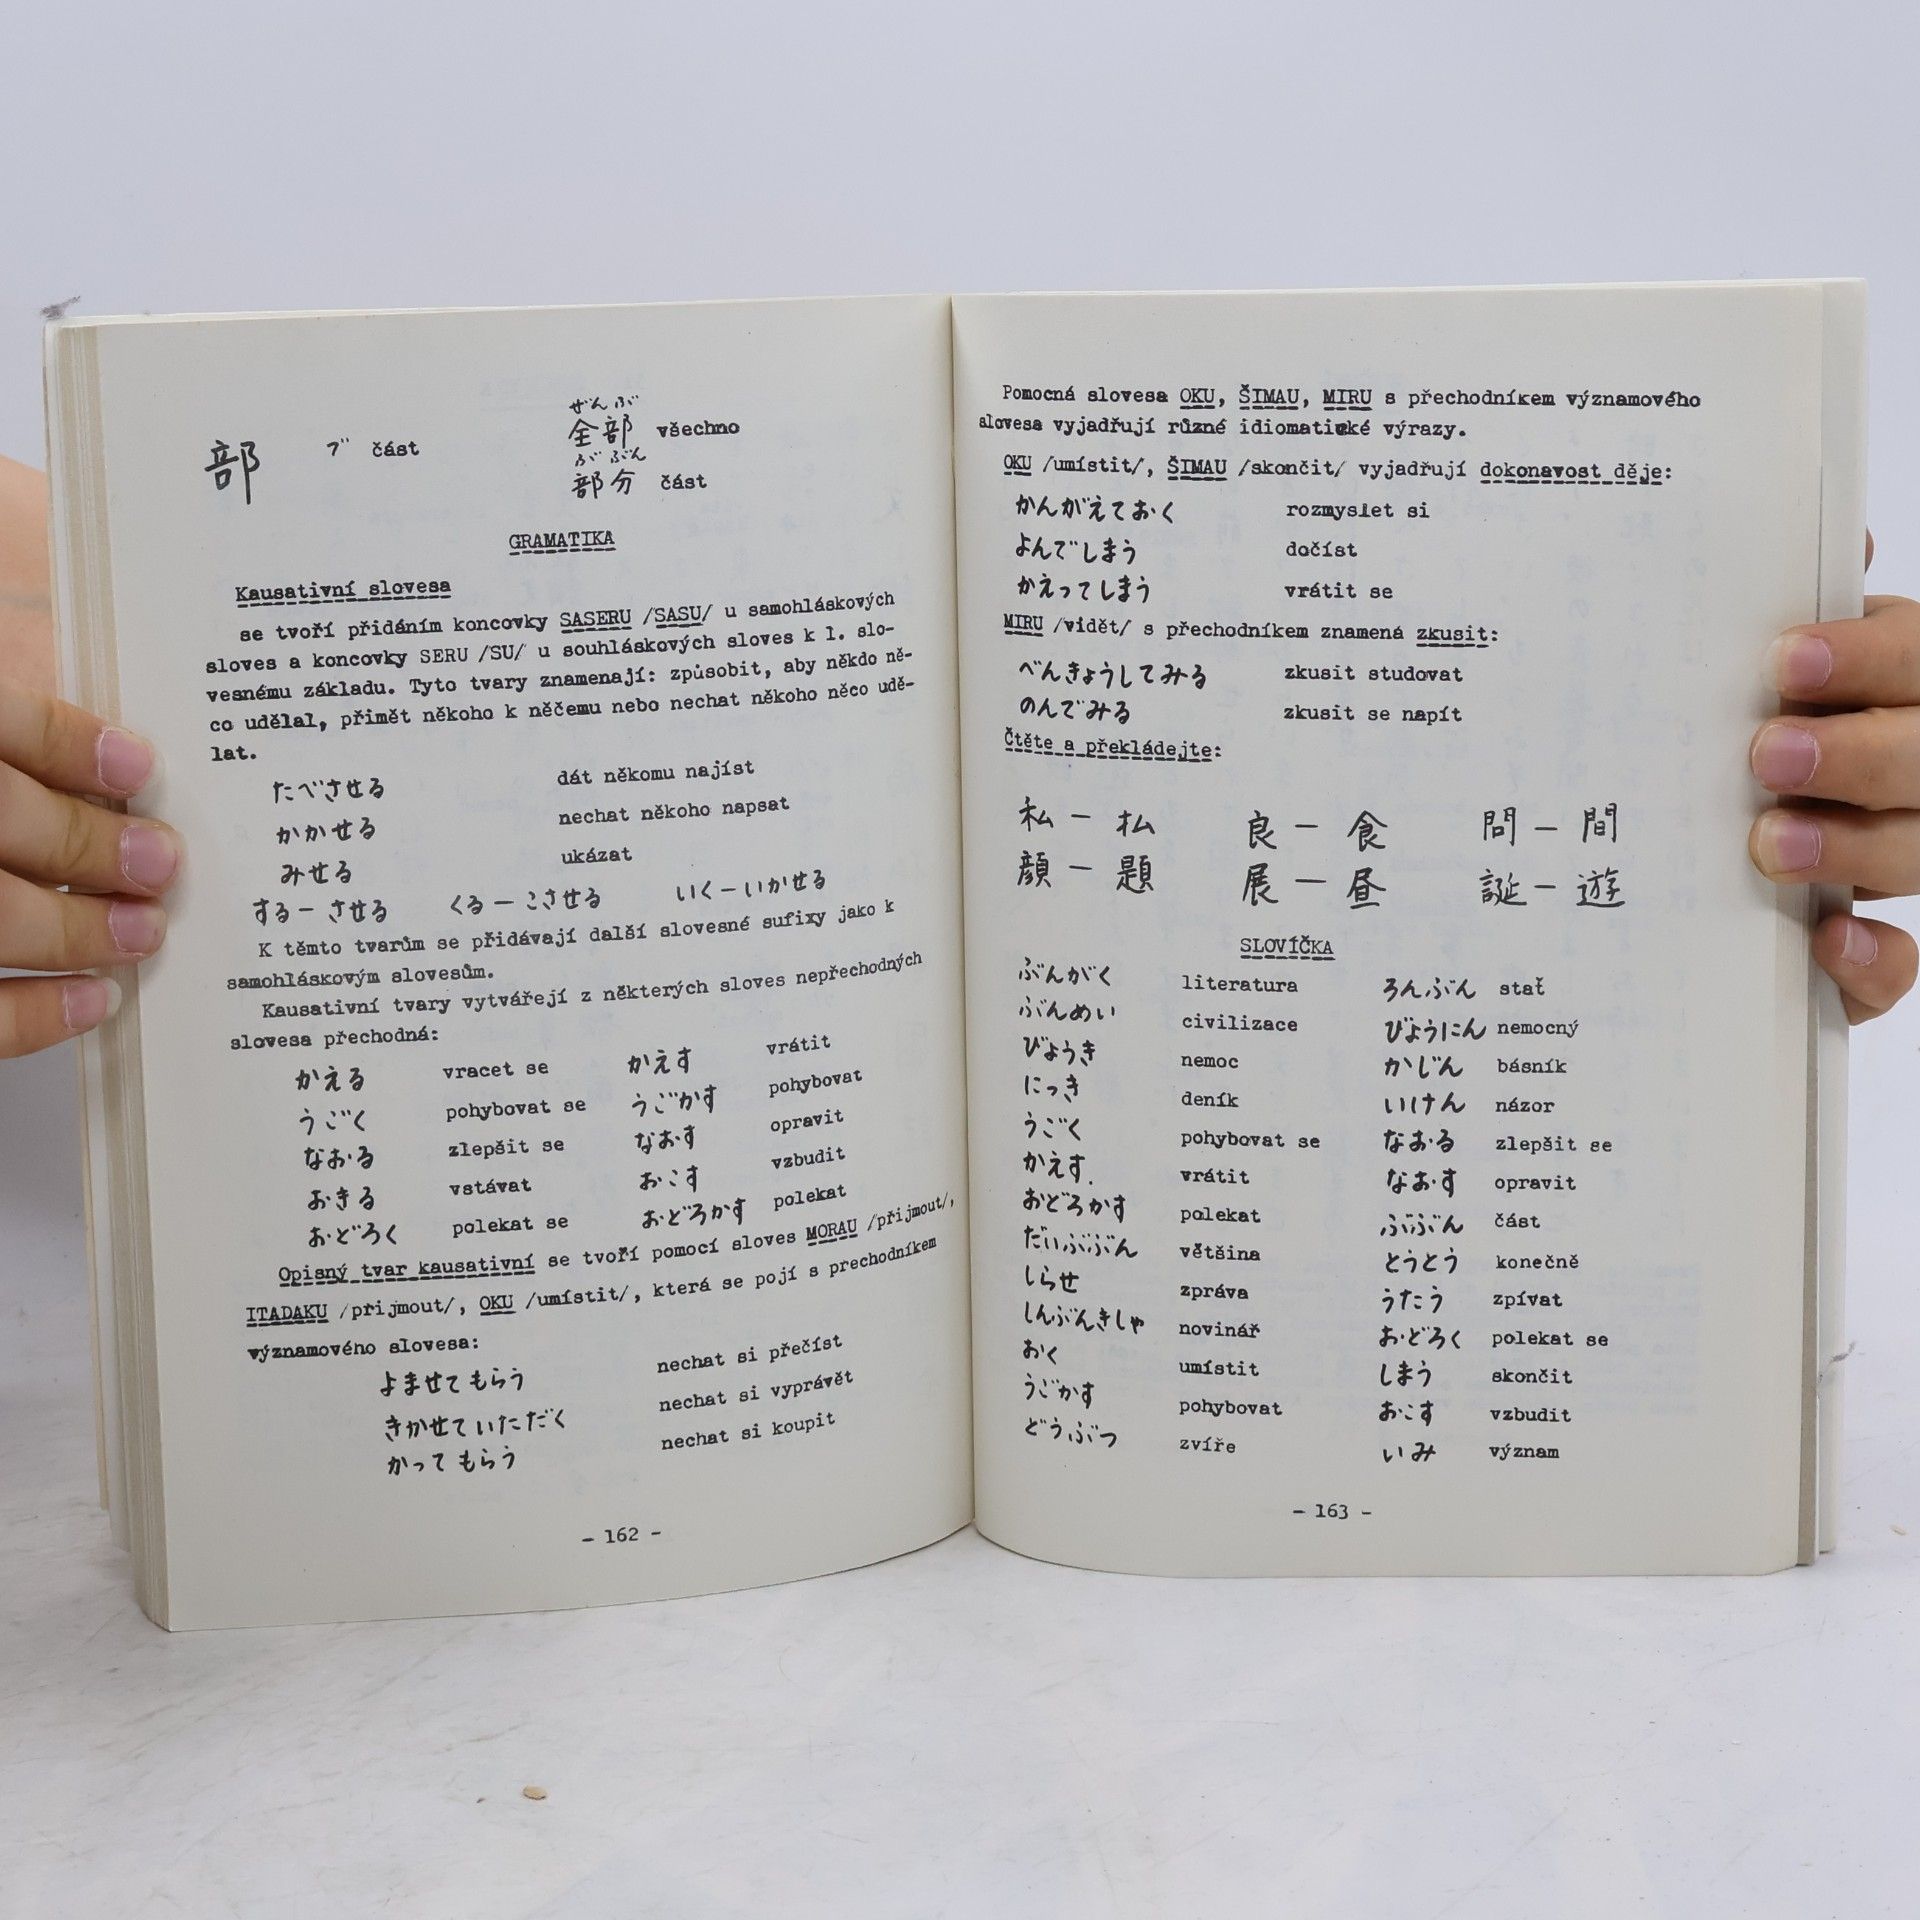 ぜんぶ
部 ブ část 全部 všechno
ぶぶん
部分 část
GRAMATIKA
Kausativní slovesa
se tvoří přidáním koncovky SASERU /SASU/ u samohláskových
sloves a koncovky SERU /SU/ u souhláskových sloves k 1. slo-
vesnému základu. Tyto tvary znamenají: způsobit, aby někdo ně-
co udělal, přimět někoho k něčemu nebo nechat někoho něco udě-
lat.
たべさせる dát někomu najíst
かかせる nechat někoho napsat
みせる ukázat
する－させる くる－こさせる いく－いかせる
K těmto tvarům se přidávají další slovesné sufixy jako k
samohláskovým slovesům.
Kausativní tvary vytvářejí z některých sloves nepřechodných
slovesa přechodná:
かえる vracet se かえす vrátit
うごく pohybovat se うごかす pohybovat
なおる zlepšit se なおす opravit
おきる vstávat おこす vzbudit
おどろく polekat se おどろかす polekat
Opisný tvar kausativní se tvoří pomocí sloves MORAU /přijmout/,
ITADAKU /přijmout/, OKU /umístit/, která se pojí s prechodníkem
významového slovesa:
よませてもらう nechat si přečíst
きかせていただく nechat si vyprávět
かってもらう nechat si koupit
- 162 -
Pomocná slovesa OKU, ŠIMAU, MIRU s přechodníkem významového
slovesa vyjadřují různé idiomatické výrazy.
OKU /umístit/, ŠIMAU /skončit/ vyjadřují dokonavost děje:
かんがえておく rozmyslet si
よんでしまう dočíst
かえってしまう vrátit se
MIRU /vidět/ s přechodníkem znamená zkusit:
べんきょうしてみる zkusit studovat
のんでみる zkusit se napít
Čtěte a překládejte:
私－払 良－食 問－間
顔－題 展－昼 誕－遊
SLOVÍČKA
ぶんがく literatura ろんぶん stať
ぶんめい civilizace びょうにん nemocný
びょうき nemoc かじん básník
にっき deník いけん názor
うごく pohybovat se なおる zlepšit se
かえす. vrátit なおす opravit
おどろかす polekat ぶぶん část
だいぶぶん většina とうとう konečně
しらせ zpráva うたう zpívat
しんぶんきしゃ novinář おどろく polekat se
おく umístit しまう skončit
うごかす pohybovat おこす vzbudit
どうぶつ zvíře いみ význam
- 163 -